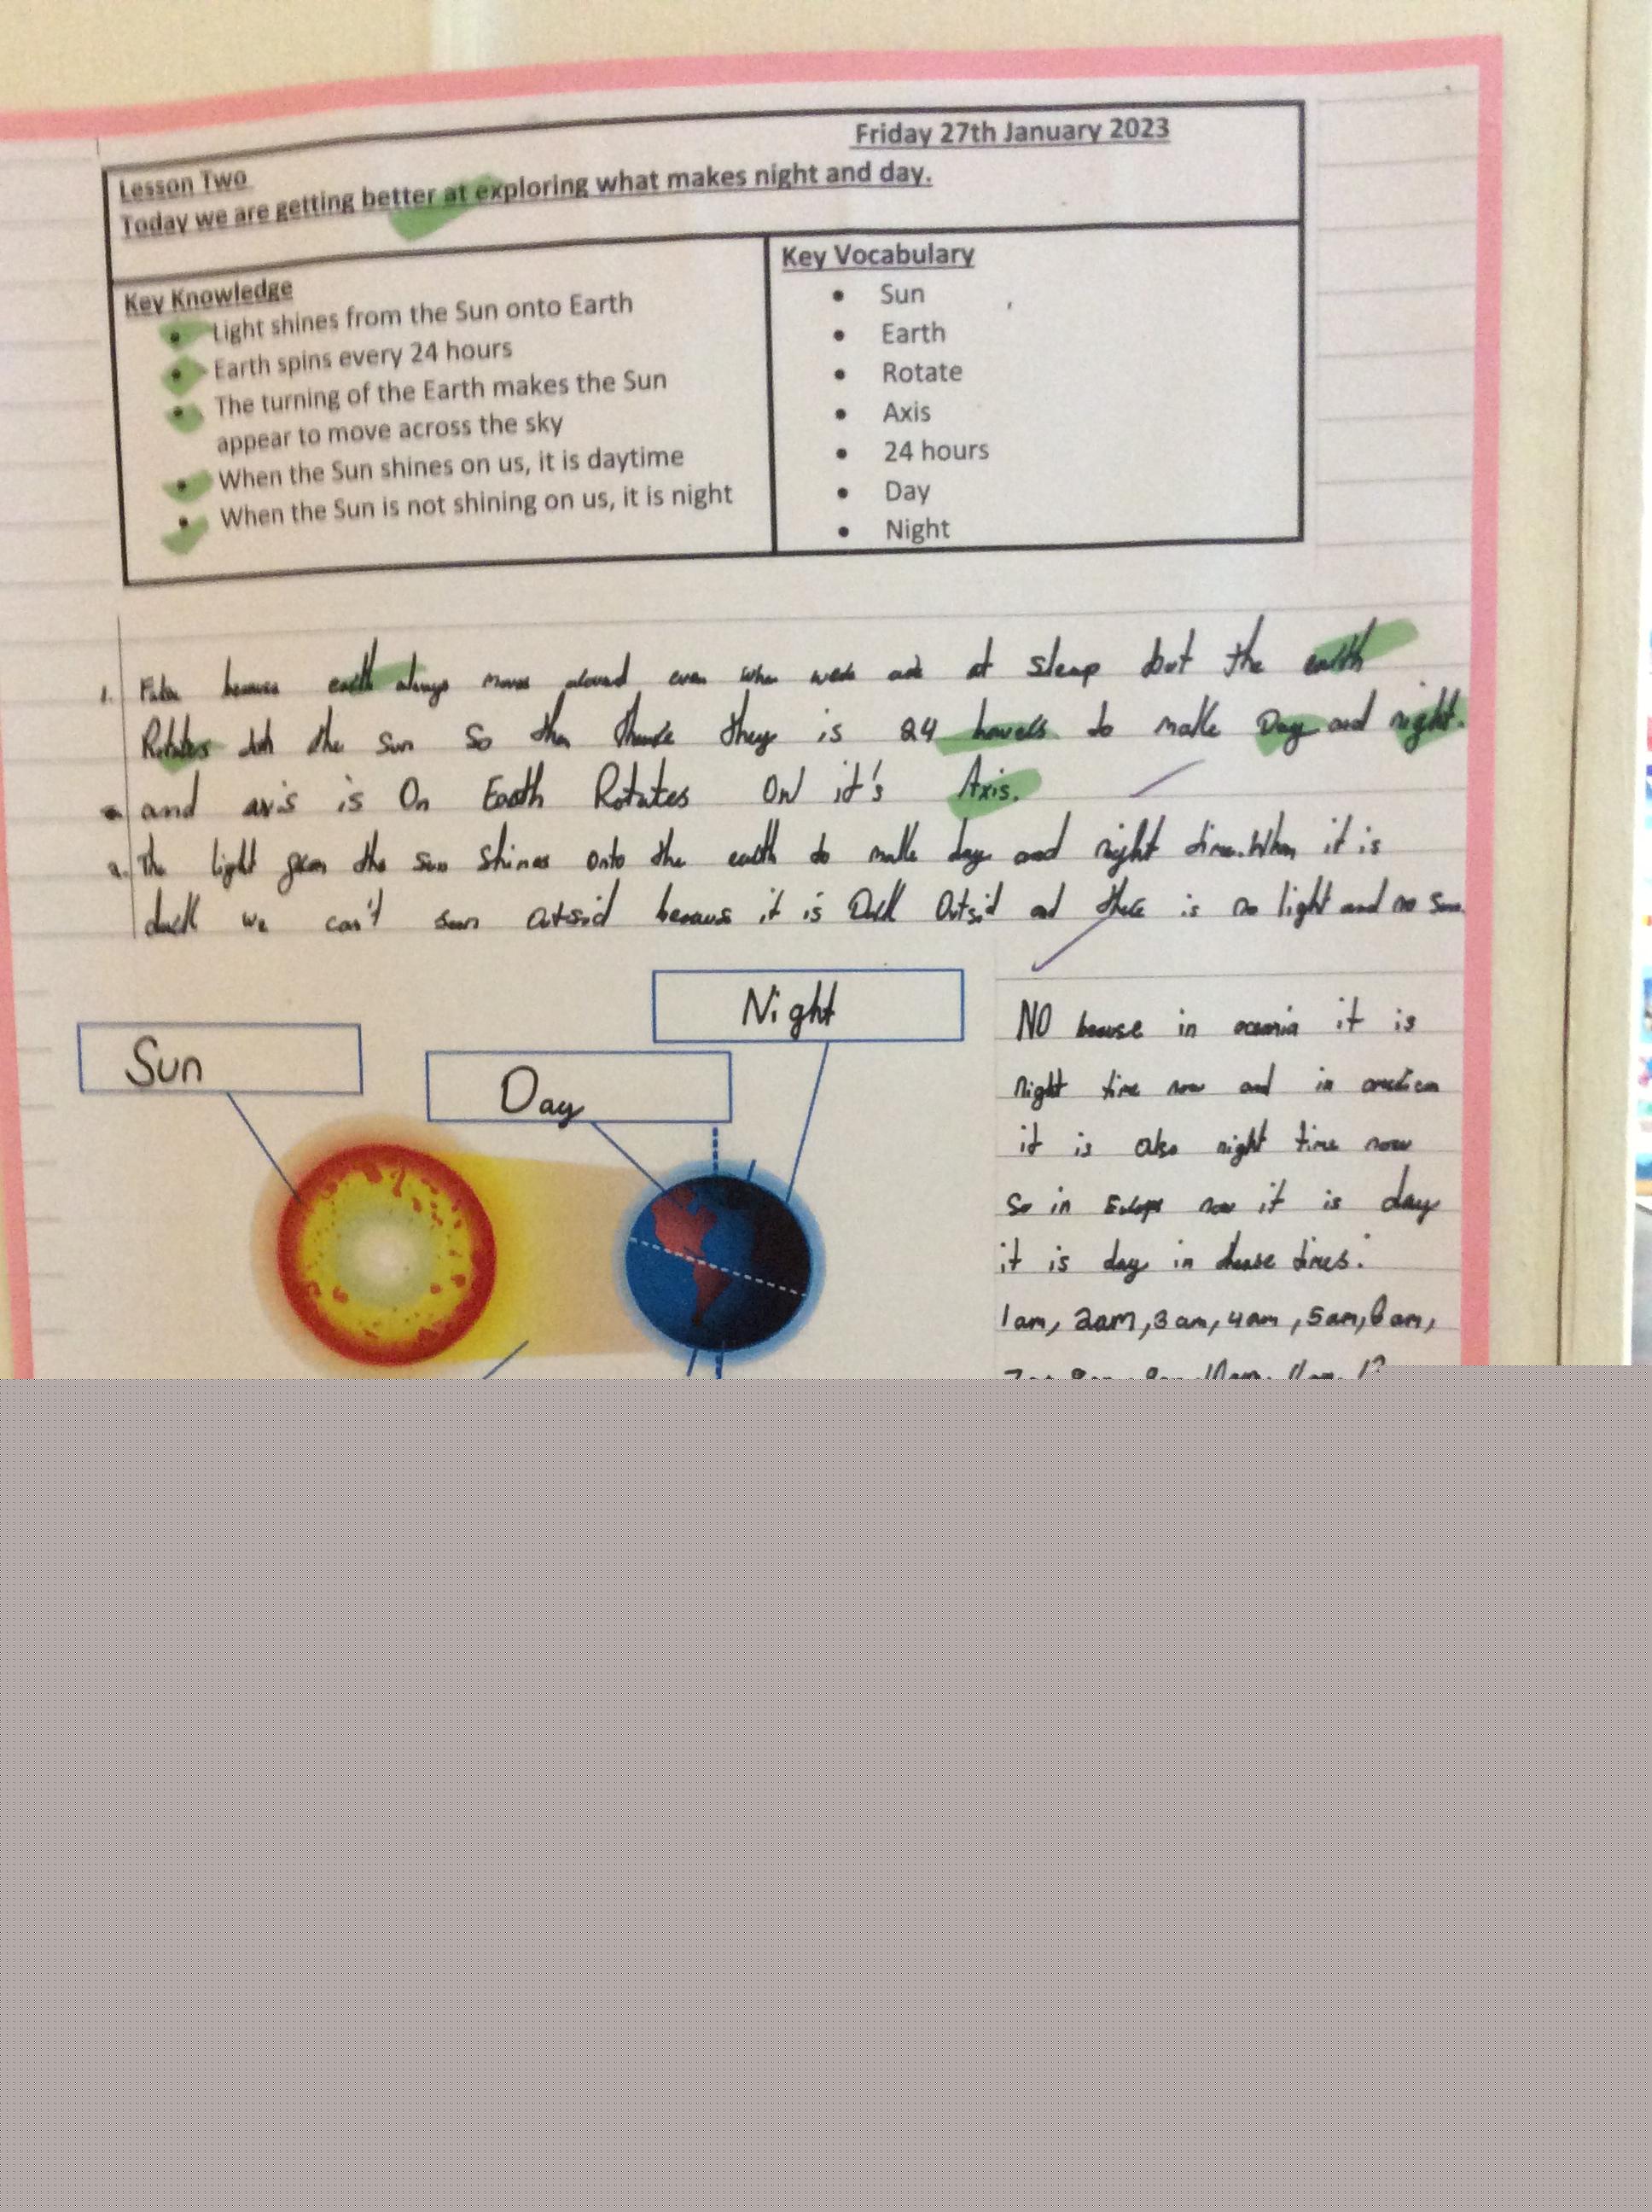 Friday 27th January 2023
Lesson Two
Today we are getting better at exploring what makes night and day.
Key Knowledge
Light shines from the Sun onto Earth
Earth spins every 24 hours
The turning of the Earth makes the Sun
appear to move across the sky
When the Sun shines on us, it is daytime
When the Sun is not shining on us, it is night
Key Vocabulary
Sun
Earth
Rotate
Axis
24 hours
Day
Night
1. earth always moves around even when at sleep but the earth
Rotates the sun so then they is 24 to make Day and night.
and axis is On Earth Rotates ON it's Axis.
2. The light the sun shines onto the earth to make day and night time. When it is
we can't because it is and there is no light and no sun.
Sun
Day
Night
NO because in oceania it is
night time now and in
it is also night time now
so in now it is day
it is day in these times:
1am, 2am, 3am, 4am, 5am, 6am,
10am, 11am, 12